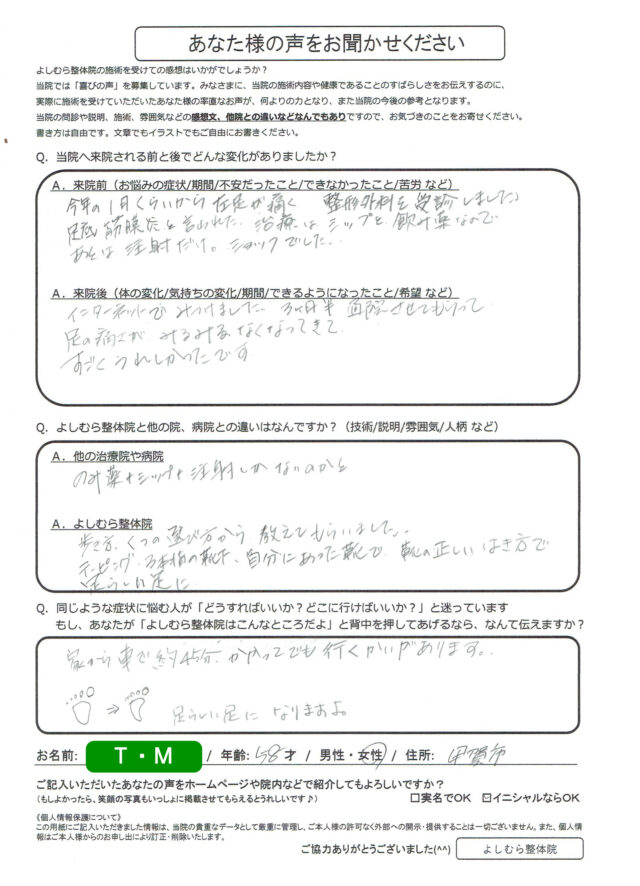 あなた様の声をお聞かせください
よしむら整体院の施術を受けての感想はいかがでしょうか？
当院では「喜びの声」を募集しています。みなさまに、当院の施術内容や健康であることのすばらしさをお伝えするのに、
実際に施術を受けていただいたあなた様の率直なお声が、何よりの力となり、また当院の今後の参考となります。
当院の問診や説明、施術、雰囲気などの感想文、他院との違いなどなんでもありですので、お気づきのことをお寄せください。
書き方は自由です。文章でもイラストでもご自由にお書きください。
Q．当院へ来院される前と後でどんな変化がありましたか？
A．来院前（お悩みの症状/期間/不安だったこと/できなかったこと/苦労 など）
今年の1月くらいから 右足が痛く 整形外科を受診しました。
足底筋膜炎と言われた。治療はシップと飲み薬なので
あとは注射だけ。ショックでした。
A．来院後（体の変化/気持ちの変化/期間/できるようになったこと/希望 など）
インターネットで みつけました。3ヶ月半 通院させてもらって
足の痛さが みるみる なくなってきて
すごく うれしかったです
Q．よしむら整体院と他の院、病院との違いはなんですか？（技術/説明/雰囲気/人柄 など）
A．他の治療院や病院
のみ薬+シップ+注射しかないのかと
A．よしむら整体院
歩き方、くつの選び方から 教えてもらいました。
テーピング、5本指の靴下、自分にあった靴で 靴の正しいはき方で
足らしい足に
Q．同じような症状に悩む人が「どうすればいいか？どこに行けばいいか？」と迷っています
もし、あなたが「よしむら整体院はこんなところだよ」と背中を押してあげるなら、なんて伝えますか？
家から車で約45分 かかってでも 行くかいがあります。
⇒ 足らしい足に なりますよ。
お名前： T・M / 年齢：58才 / 男性・女性 / 住所： 甲賀市
ご記入いただいたあなたの声をホームページや院内などで紹介してもよろしいですか？
（もしよかったら、笑顔の写真もいっしょに掲載させてもらえるとうれしいです♪） □実名でOK ☑イニシャルならOK
《個人情報保護について》
この用紙にご記入いただきました情報は、当院の貴重なデータとして厳重に管理し、ご本人様の許可なく外部への開示・提供することは一切ございません。また、個人情
報はご本人様からのお申し出により訂正・削除いたします。
ご協力ありがとうございました(^^) よしむら整体院